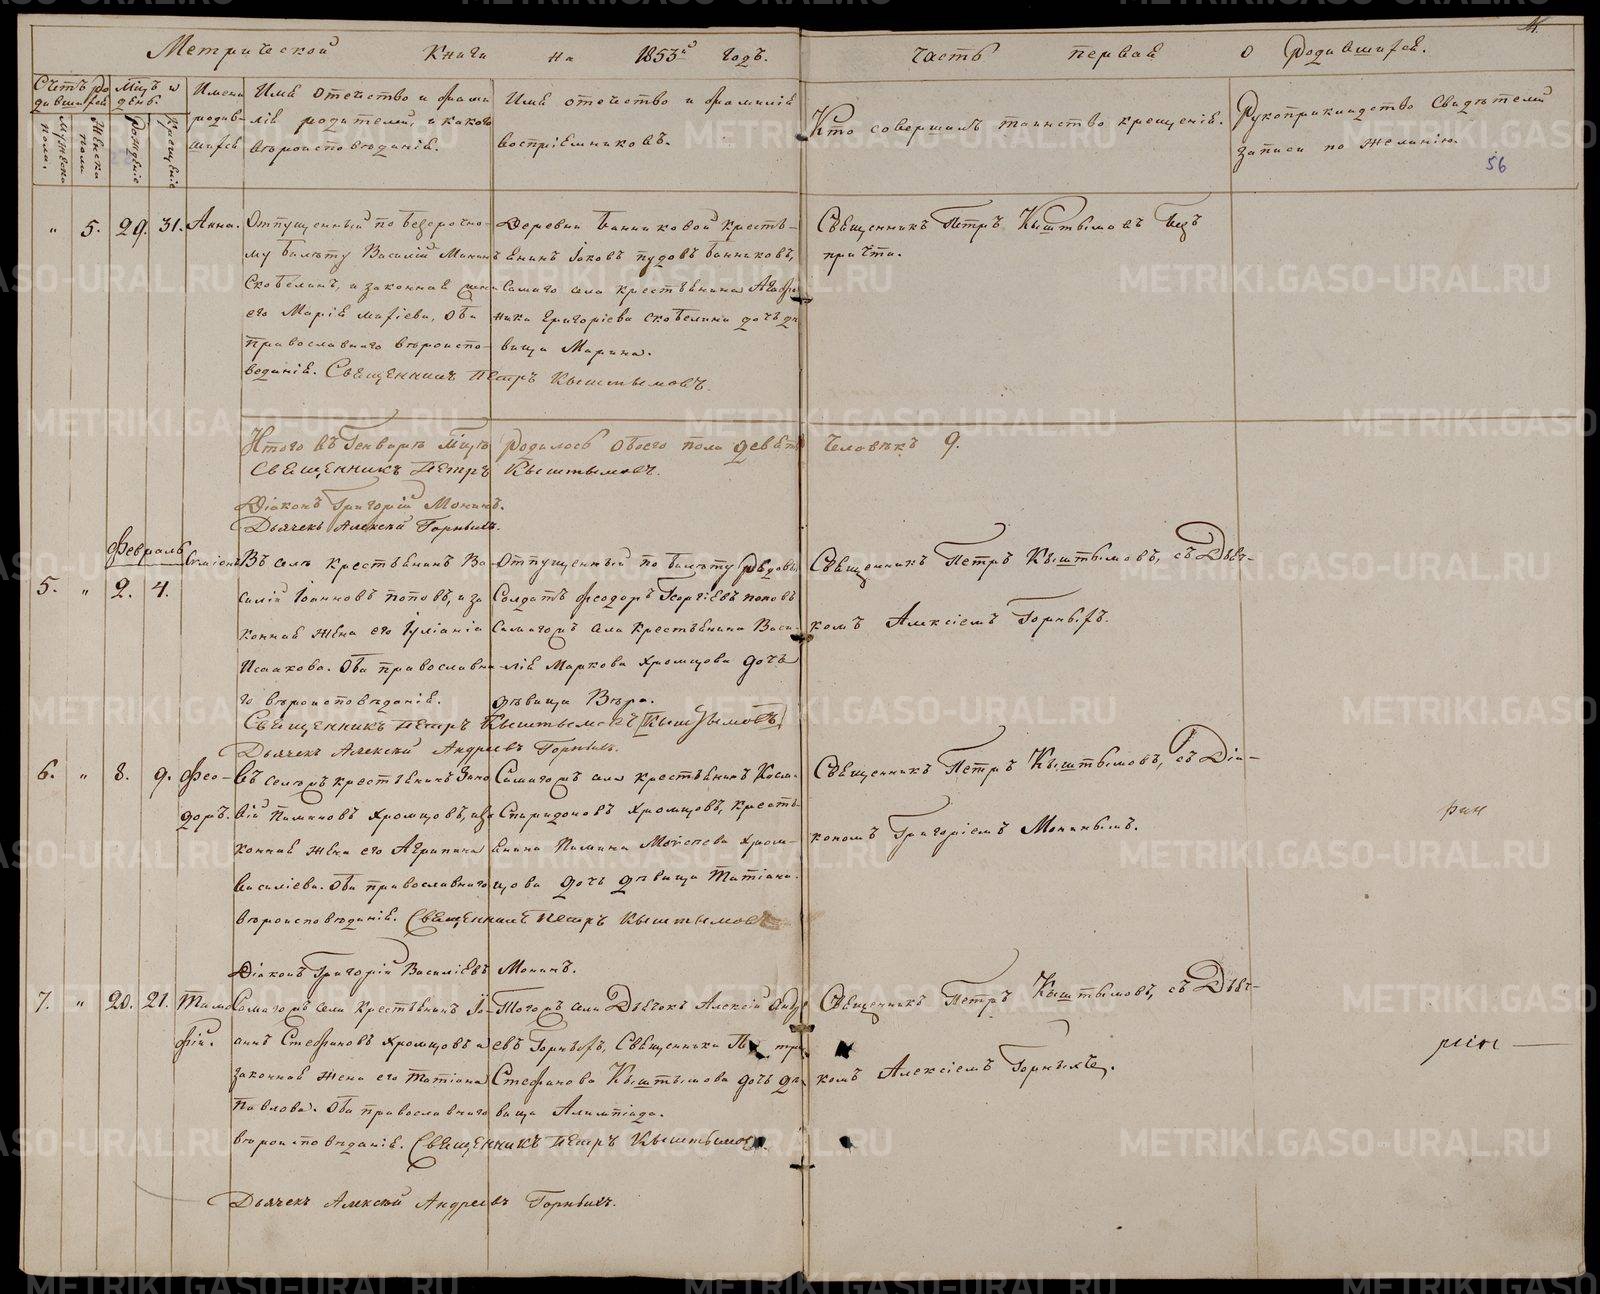 Метрической Книги на 1853й годъ.
часть первая о Родившихся.
Счетъ родившихся
Мужеска пола.
Женска пола
Мцъ и день.
Рожденіе
Крещеніе
Имена родившихся
Имя отечество и фамилія родителей, и какого вѣроисповѣданія.
Имя отечество и фамилія воспріемниковъ.
Кто совершалъ таинство крещенія.
Рукоприкладство Свидѣтелей записи по желанію.
56
" 5. 29. 31. Анна.
Отпущенный по безсрочно-
му билету Василій
Скобелинъ, и законная жена
его Марія
православнаго вѣроиспо-
веданія. Священникъ Петръ Кыштымовъ.
Деревни Банниковой кресть-
янинъ Іаковъ пудовъ Банниковъ,
Самаго села крестьянина Агафо-
ника Григоріева Скобелина дочь дѣ-
вица Марина.
Священникъ Петръ Кыштымовъ безъ
причта.
Итого въ Генварѣ Мцѣ родилось обоего пола девять человѣкъ 9.
Священникъ Петръ Кыштымовъ.
Діаконъ Григорій Монинъ.
Дьячекъ Алексѣй Горныхъ.
Февраль
5. " 2. 4.
Въ селѣ крестьянинъ Ва-
силій Іоанновъ поповъ, и за-
конная жена его Іуліанія
Исаакова. Оба православна-
го вѣроисповѣданія.
Священникъ Петръ Кыштымовъ (Кыштымовъ)
Дьячекъ Алексѣй Андреевъ Горныхъ.
Отпущенный по билету рядовый
Солдатъ Феодоръ Георгіевъ поповъ
Самагожъ села крестьянина Васи-
лія Маркова Хромцова дочь
дѣвица Вѣра.
Священникъ Петръ Кыштымовъ, съ Дьяч-
комъ Алексіемъ Горныхъ.
6. " 8. 9. Фео-
доръ.
Въ селѣжъ крестьянинъ Зино-
вій Пименовъ Хромцовъ, и за-
конная жена его Агрипина
Василіева. Оба православнаго
вѣроисповѣданія. Священникъ Петръ Кыштымовъ
Діаконъ Григорій Василіевъ Монинъ.
Самагожъ села крестьянинъ Косма
Спиридоновъ Хромцовъ, кресть-
янина Пимена Моѵсеева Хром-
цова дочь дѣвица Татіана.
Священникъ Петръ Кыштымовъ, съ Діа-
кономъ Григоріемъ Монинымъ.
7. " 20. 21. Тимо-
фей.
Самагожъ села Крестьянинъ Іо-
аннъ Стефановъ Хромцовъ и
законная жена его Татіана
Павлова. Оба православнаго
вѣроисповѣданія. Священникъ Петръ Кыштымовъ.
Дьячекъ Алексѣй Андреевъ Горныхъ.
Тогожъ села Дьячокъ Алексій Андре-
евъ Горныхъ, Священника Петра
Стефанова Кыштымова дочь дѣ-
вица Алимпіада.
Священникъ Петръ Кыштымовъ, съ Дьяч-
комъ Алексіемъ Горныхъ.
METRIKI.GASO-URAL.RU